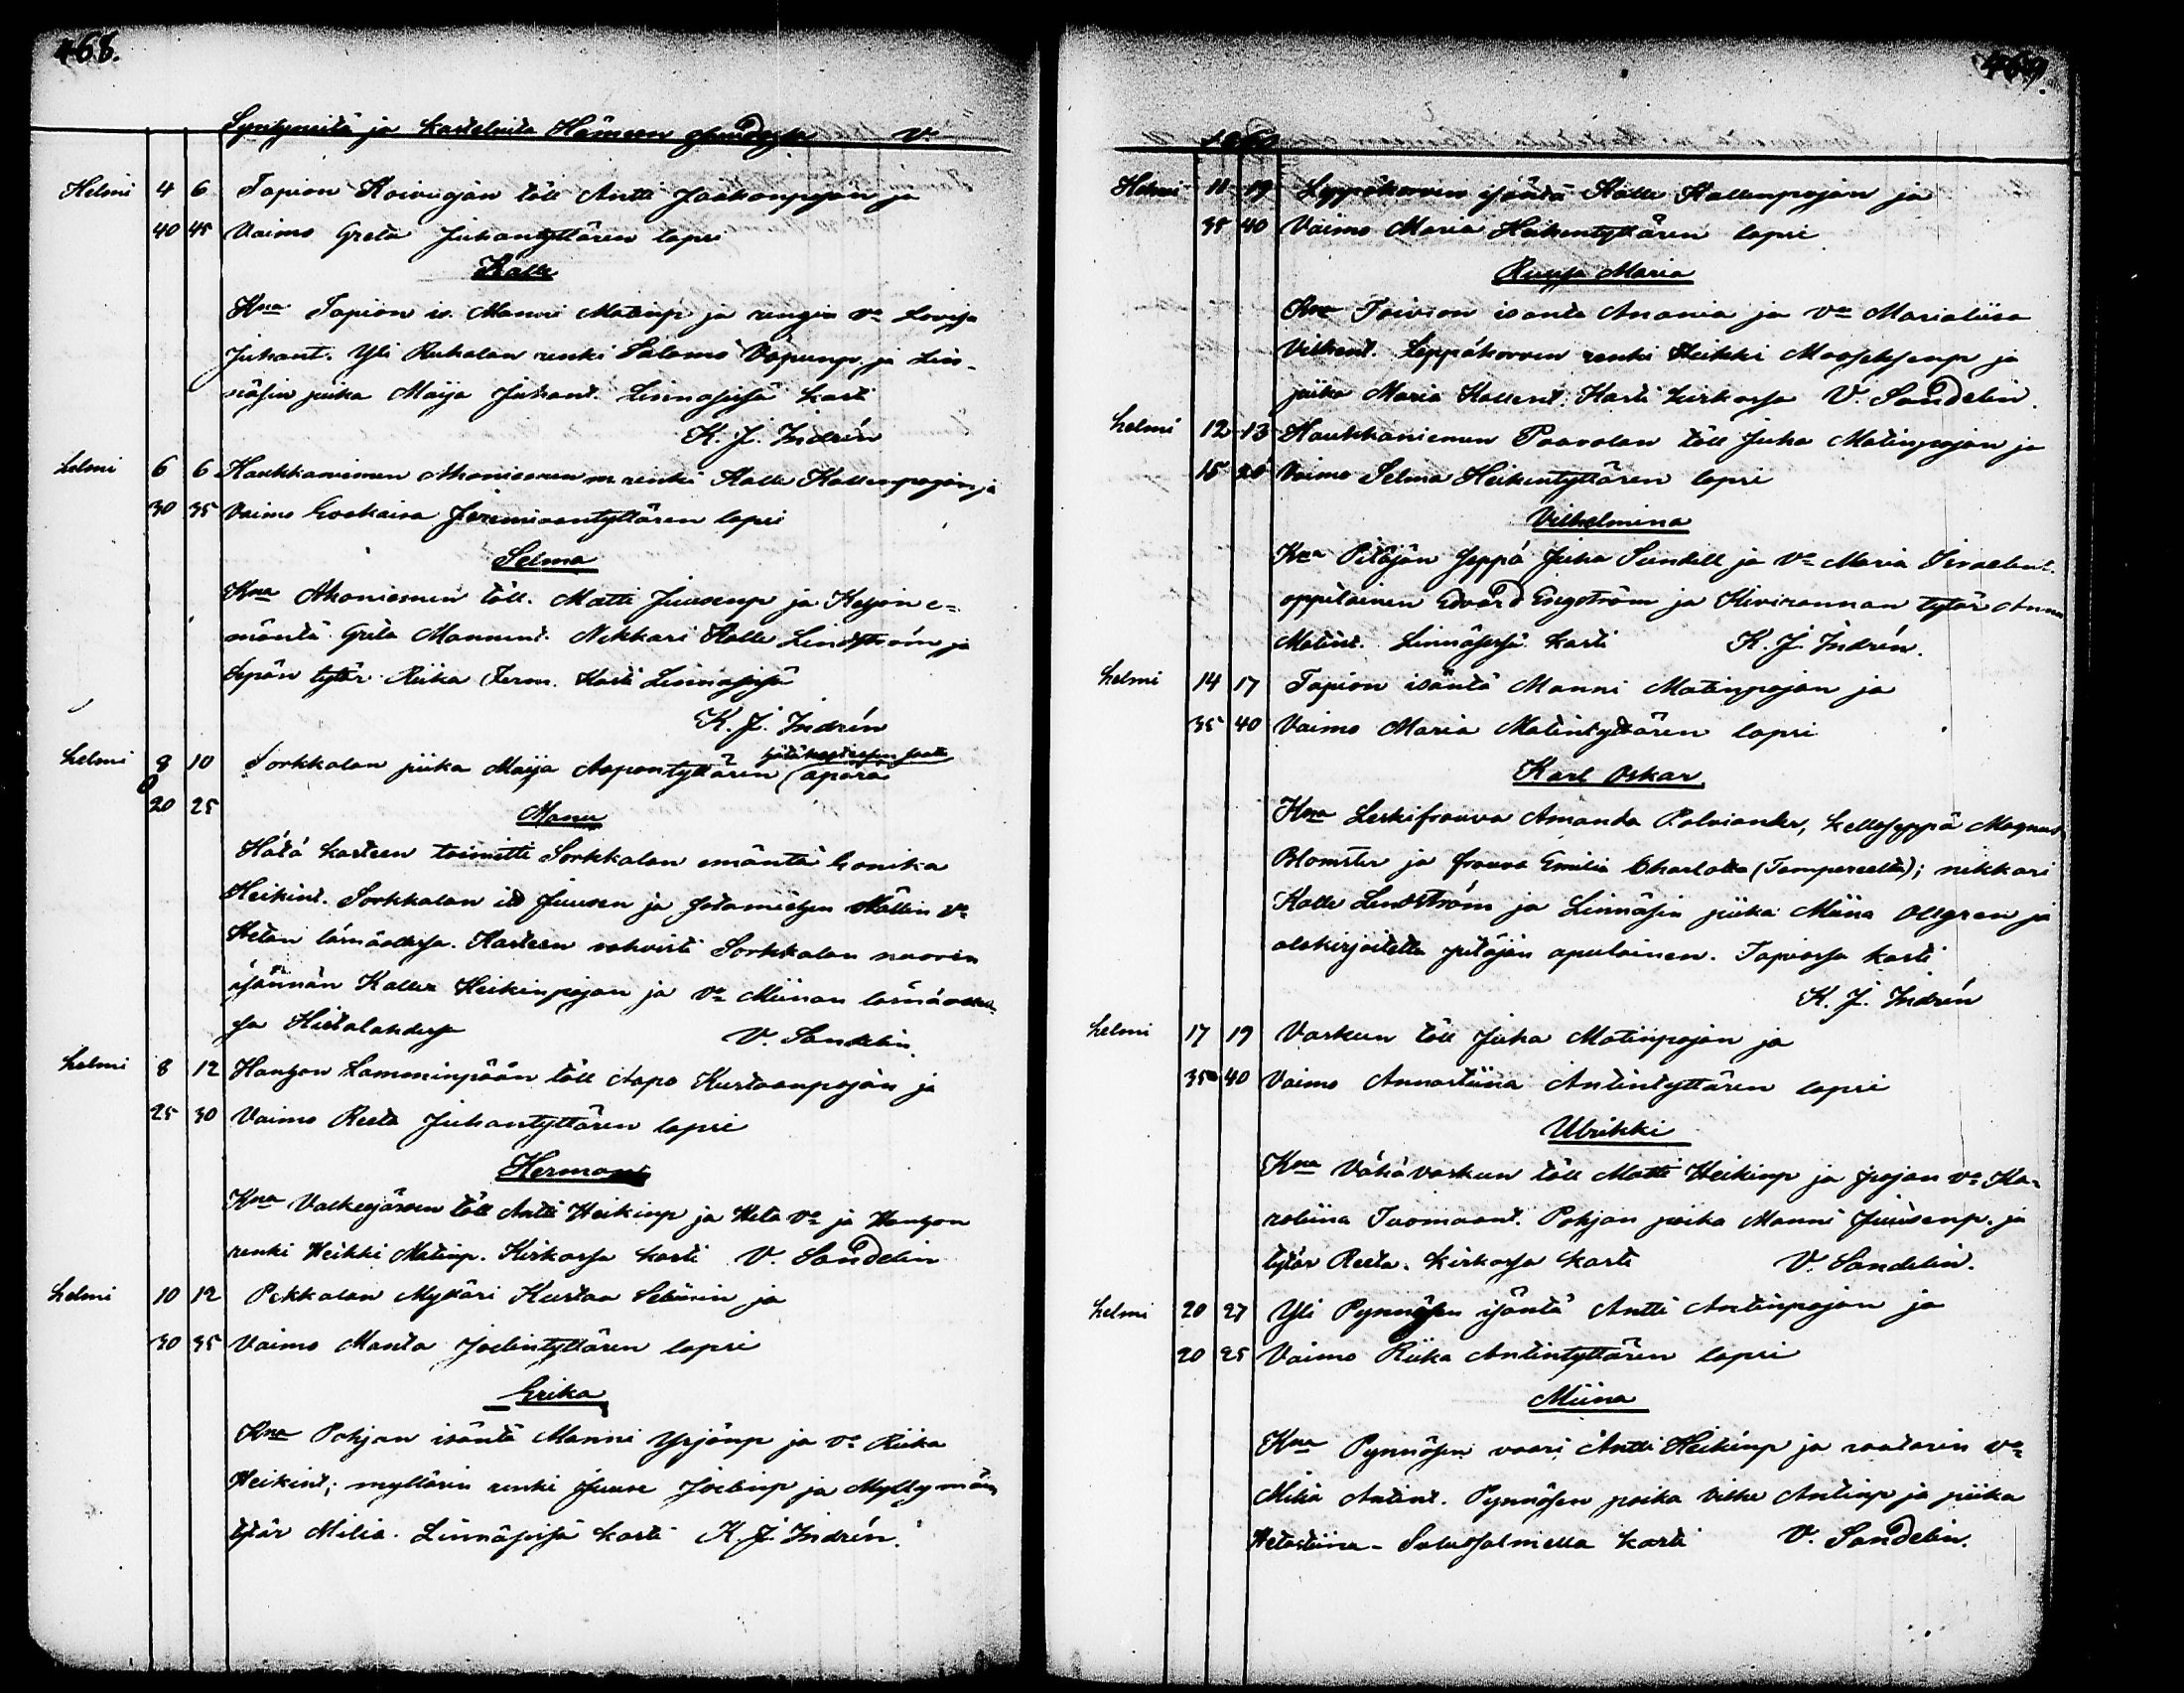 468.
Syntyneitä ja kasteluita Hämeen V.
Helmi 4 6 Tapion Koivuojan töll Antti Jaakonpojan ja
40 45 Vaimo Greta Juhantyttären lapsi
Kalle
Kna Tapion is. Manni Matinp ja rengin va Lovisa
Juhant. Yli Ruhalan renki Salomo Vapunp. ja Lin-
näsin piika Maija Juhant. Linnasissa kasti
K. J. Indrén
helmi 6 6 Haukkaniemen Ahoniemen m renki Kalle Kallenpojan ja
30 35 Vaimo Evakaisa Jeremiaantyttären lapsi
Selma
Kna Ahoniemen töll. Matti Juusenp ja Keson e=
mäntä Greta Mannint. Nikkari Kalle Lindström ja
Sepän tytär Riika Ferm. Kasti Linnasissä
K. J. Indrén
helmi 8 10 Sorkkalan piika Maija Aapontyttären (äpärä
20 25
Manu
Hätä kasteen toimitti Sorkkalan emäntä Eonika
Heikint. Sorkkalan is Juusen ja Sotamiehen Kállin va
Hetan läsnäollessa. Kasteen vahvisti Sorkkalan nuorin
isännän Kallen Heikinpojan ja va Miinan läsnäolles-
sa Hietalahdessa V. Sandelin.
helmi 8 12 Hangon Lamminpään töll Aapo Kustaanpojan ja
25 30 Vaimo Reeta Juhantyttären lapsi
Herman
Kna Valkeejärven töll Antti Heikinp ja Heta va ja Hangon
renki Heikki Matinp. Kirkossa kasti V. Sandelin
helmi 10 12 Pekkalan Mylläri Kustaa Selinin ja
30 35 Vaimo Manta Joelintyttären lapsi
Erika
Kna Pohjan isäntä Manni Yrjönp ja va Riika
Heikint; myllärin renki Juuse Joelinp ja Myllymäen
tytär Milia. Linnäsissä kasti K. J. Indrén.
469.
1860
Helmi 11 19 Leppäkorven isäntä Kalle Kallenpojan ja
35 40 Vaimo Maria Heikentyttären lapsi
Ruusa Maria
Kna Toivion isäntä Anania ja va Marialiisa
Vilhent. Leppäkorven renki Heikki Mooseksenp ja
piika Maria Kallent. Kasti kirkossa V. Sandelin.
helmi 12 13 Haukkaniemen Paavolan töll Juha Matinpojan ja
15 20 Vaimo Selma Heikentyttären lapsi
Vilhelmina
Kna Pitäjän Seppä Juha Sundell ja va Maria Israelint.
oppilainen Edvard Engström ja Kivirannan tytär Anna
Matint. Linnäsissä kasti K. J. Indrén.
helmi 14 17 Tapion isäntä Manni Matinpojan ja
35 40 Vaimo Maria Matintyttären lapsi
Karl Oskar
Kna Leskifrouva Amanda Palviander, kelloseppä Magnus
Blomster ja frouva Emilia Charlotta (Tampereelta); nikkari
Kalle Lindström ja Linnäsin piika Miina Allgren ja
alekirjoitettu pitäjän apulainen. Tapiossa kasti
K. J. Indrén
helmi 17 19 Vaskuun töll Juha Matinpojan ja
35 40 Vaimo Annastiina Antintyttären lapsi
Ulrikki
Kna Vähävaskuun töll Matti Heikinp ja pojan va Ka-
roliina Tuomaant. Pohjan poika Manni Juusenp. ja
tytär Reeta. Kirkossa kasti V. Sandelin.
helmi 20 27 Yli Pynnösen isäntä Antti Antinpojan ja
20 25 Vaimo Riika Antintyttären lapsi
Miina
Kna Pynnösen vaari Antti Heikinp ja raatarin va
Milia Antint. Pynnösen poika Vilhe Antinp ja piika
Hetastiina. Salussalmella kasti V. Sandelin.